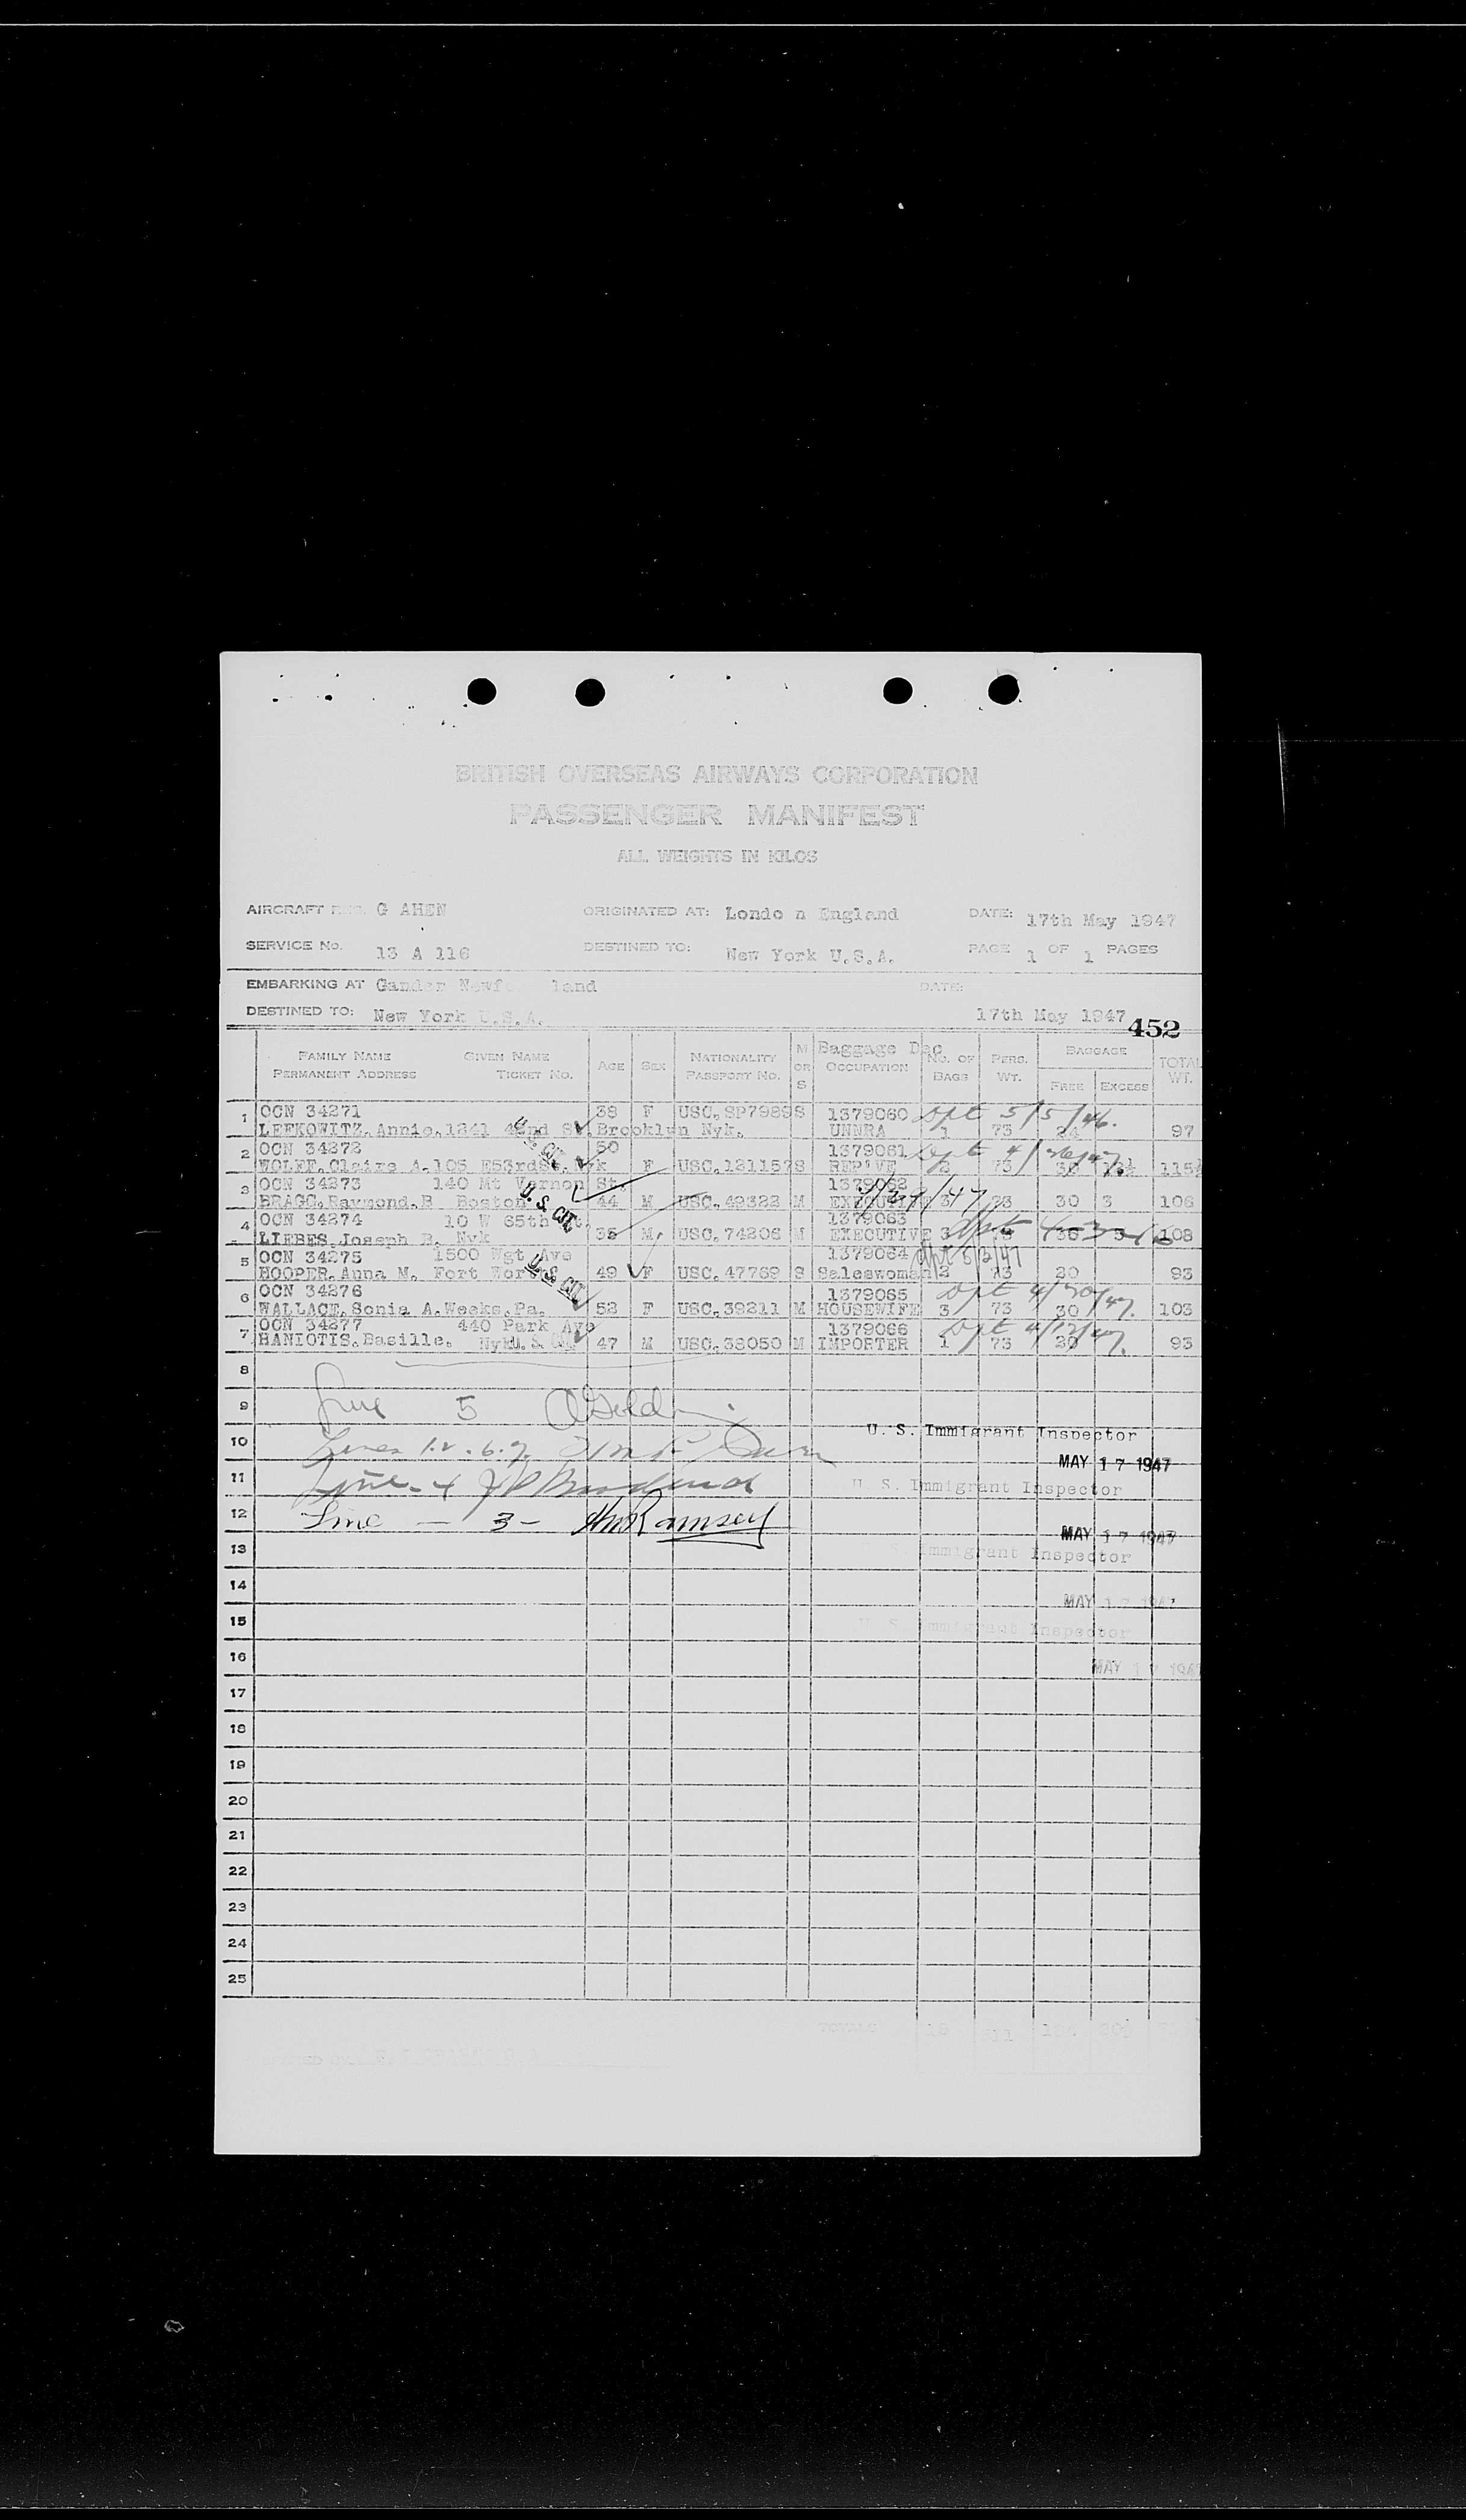 BRITISH OVERSEAS AIRWAYS CORPORATION
PASSENGER MANIFEST
ALL WEIGHTS IN KILOS
AIRCRAFT G AHEN ORIGINATED AT: Londo n England DATE: 17th May 1947
SERVICE No. 13 A 116 DESTINED TO: New York U.S.A. PAGE 1 OF 1 PAGES
EMBARKING AT Gander Newf land DATE:
DESTINED TO: New York U.S.A. 17th May 1947
452
FAMILY NAME GIVEN NAME AGE SEX NATIONALITY M OR S Baggage Dec NO. OF PERS. BAGGAGE TOTAL
PERMANENT ADDRESS TICKET NO. PASSPORT NO. OCCUPATION BAGS WT. FREE EXCESS WT.
1 OCN 34271 38 F USC. SP7989 S 1379060 Dpt 5/5/46.
LEFKOWITZ. Annie. 1841 42nd St. Brooklyn Nyk. UNNRA 1 73 24 97
2 OCN 34272 50 1379061 Dpt 4/26/47
WOLFF. Claire A. 105 E53rdSt. Nyk F USC. 121157 S REP'VE 2 73 30 115½
U. S. CIT.
3 OCN 34273 140 Mt Vernon St. 1379062 4/29/47
BRAGG. Raymond. B Boston 44 M USC. 49322 M EXECUTIVE 3 73 30 3 106
U. S. CIT.
4 OCN 34274 10 W 65th St. 1379063
LIEBES. Joseph B. Nyk 35 M. USC. 74206 M EXECUTIVE 3 108
5 OCN 34275 1500 Wgt Ave 1379064 dpt 5/2/47
HOOPER. Anna M. Fort Worth 49 F USC. 47769 S Saleswoman 2 73 20 93
U. S. CIT.
6 OCN 34276 1379065 Dpt 4/30/47.
WALLACE. Sonia A. Weeks. Pa. 52 F USC. 39211 M HOUSEWIFE 3 73 30 103
7 OCN 34277 440 Park Ave 1379066 Dpt 4/12/47.
HANIOTIS. Basille. Nyk U. S. CIT. 47 M USC. 38050 M IMPORTER 1 73 20 93
8
9 Line 5
U. S. Immigrant Inspector
10 Lines 1.2.6.7.
MAY 17 1947
11 Line - 4
U. S. Immigrant Inspector
12 Line - 3 - Ramsey
MAY 17 1947
13 U. S. Immigrant Inspector
14
MAY 17 1947
15 U. S. Immigrant Inspector
16
MAY 17 1947
17
18
19
20
21
22
23
24
25
TOTALS